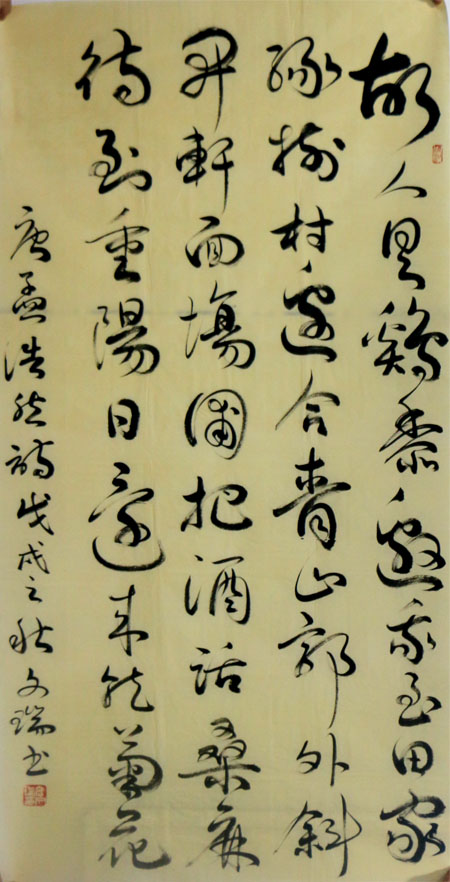 故人具鷄黍邀我至田家
綠樹村邊合青山郭外斜
開軒面場圃把酒話桑麻
待到重陽日還來就菊花
唐孟浩然詩戊戌之秋文瑞书